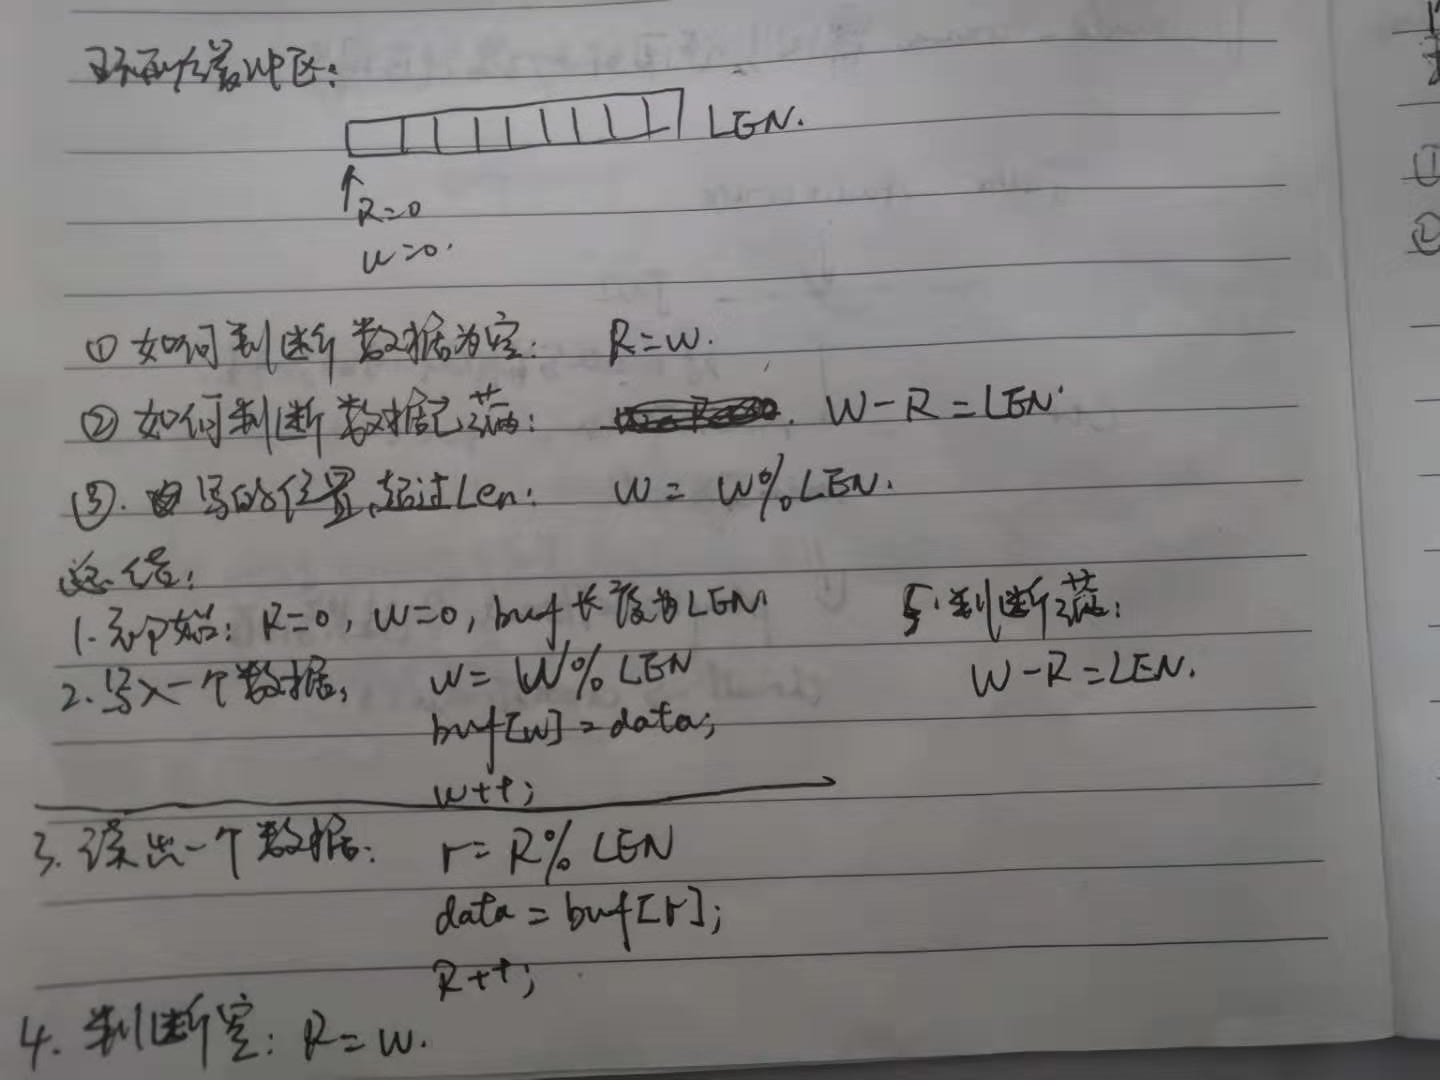 环形缓冲区:
LEN.
R=0
w=0.
① 如何判断数据为空: R=w.
② 如何判断数据已满: W-R=LEN
③. 写的位置超过Len: W= W%LEN.
总结:
1. 初始: R=0, w=0, buf长度为LEN
2. 写入一个数据, w= W%LEN
buf[w]=data;
w++;
3. 读出一个数据: r=R%LEN
data=buf[r];
R++;
4. 判断空: R=w.
5. 判断满:
W-R=LEN.
①
②